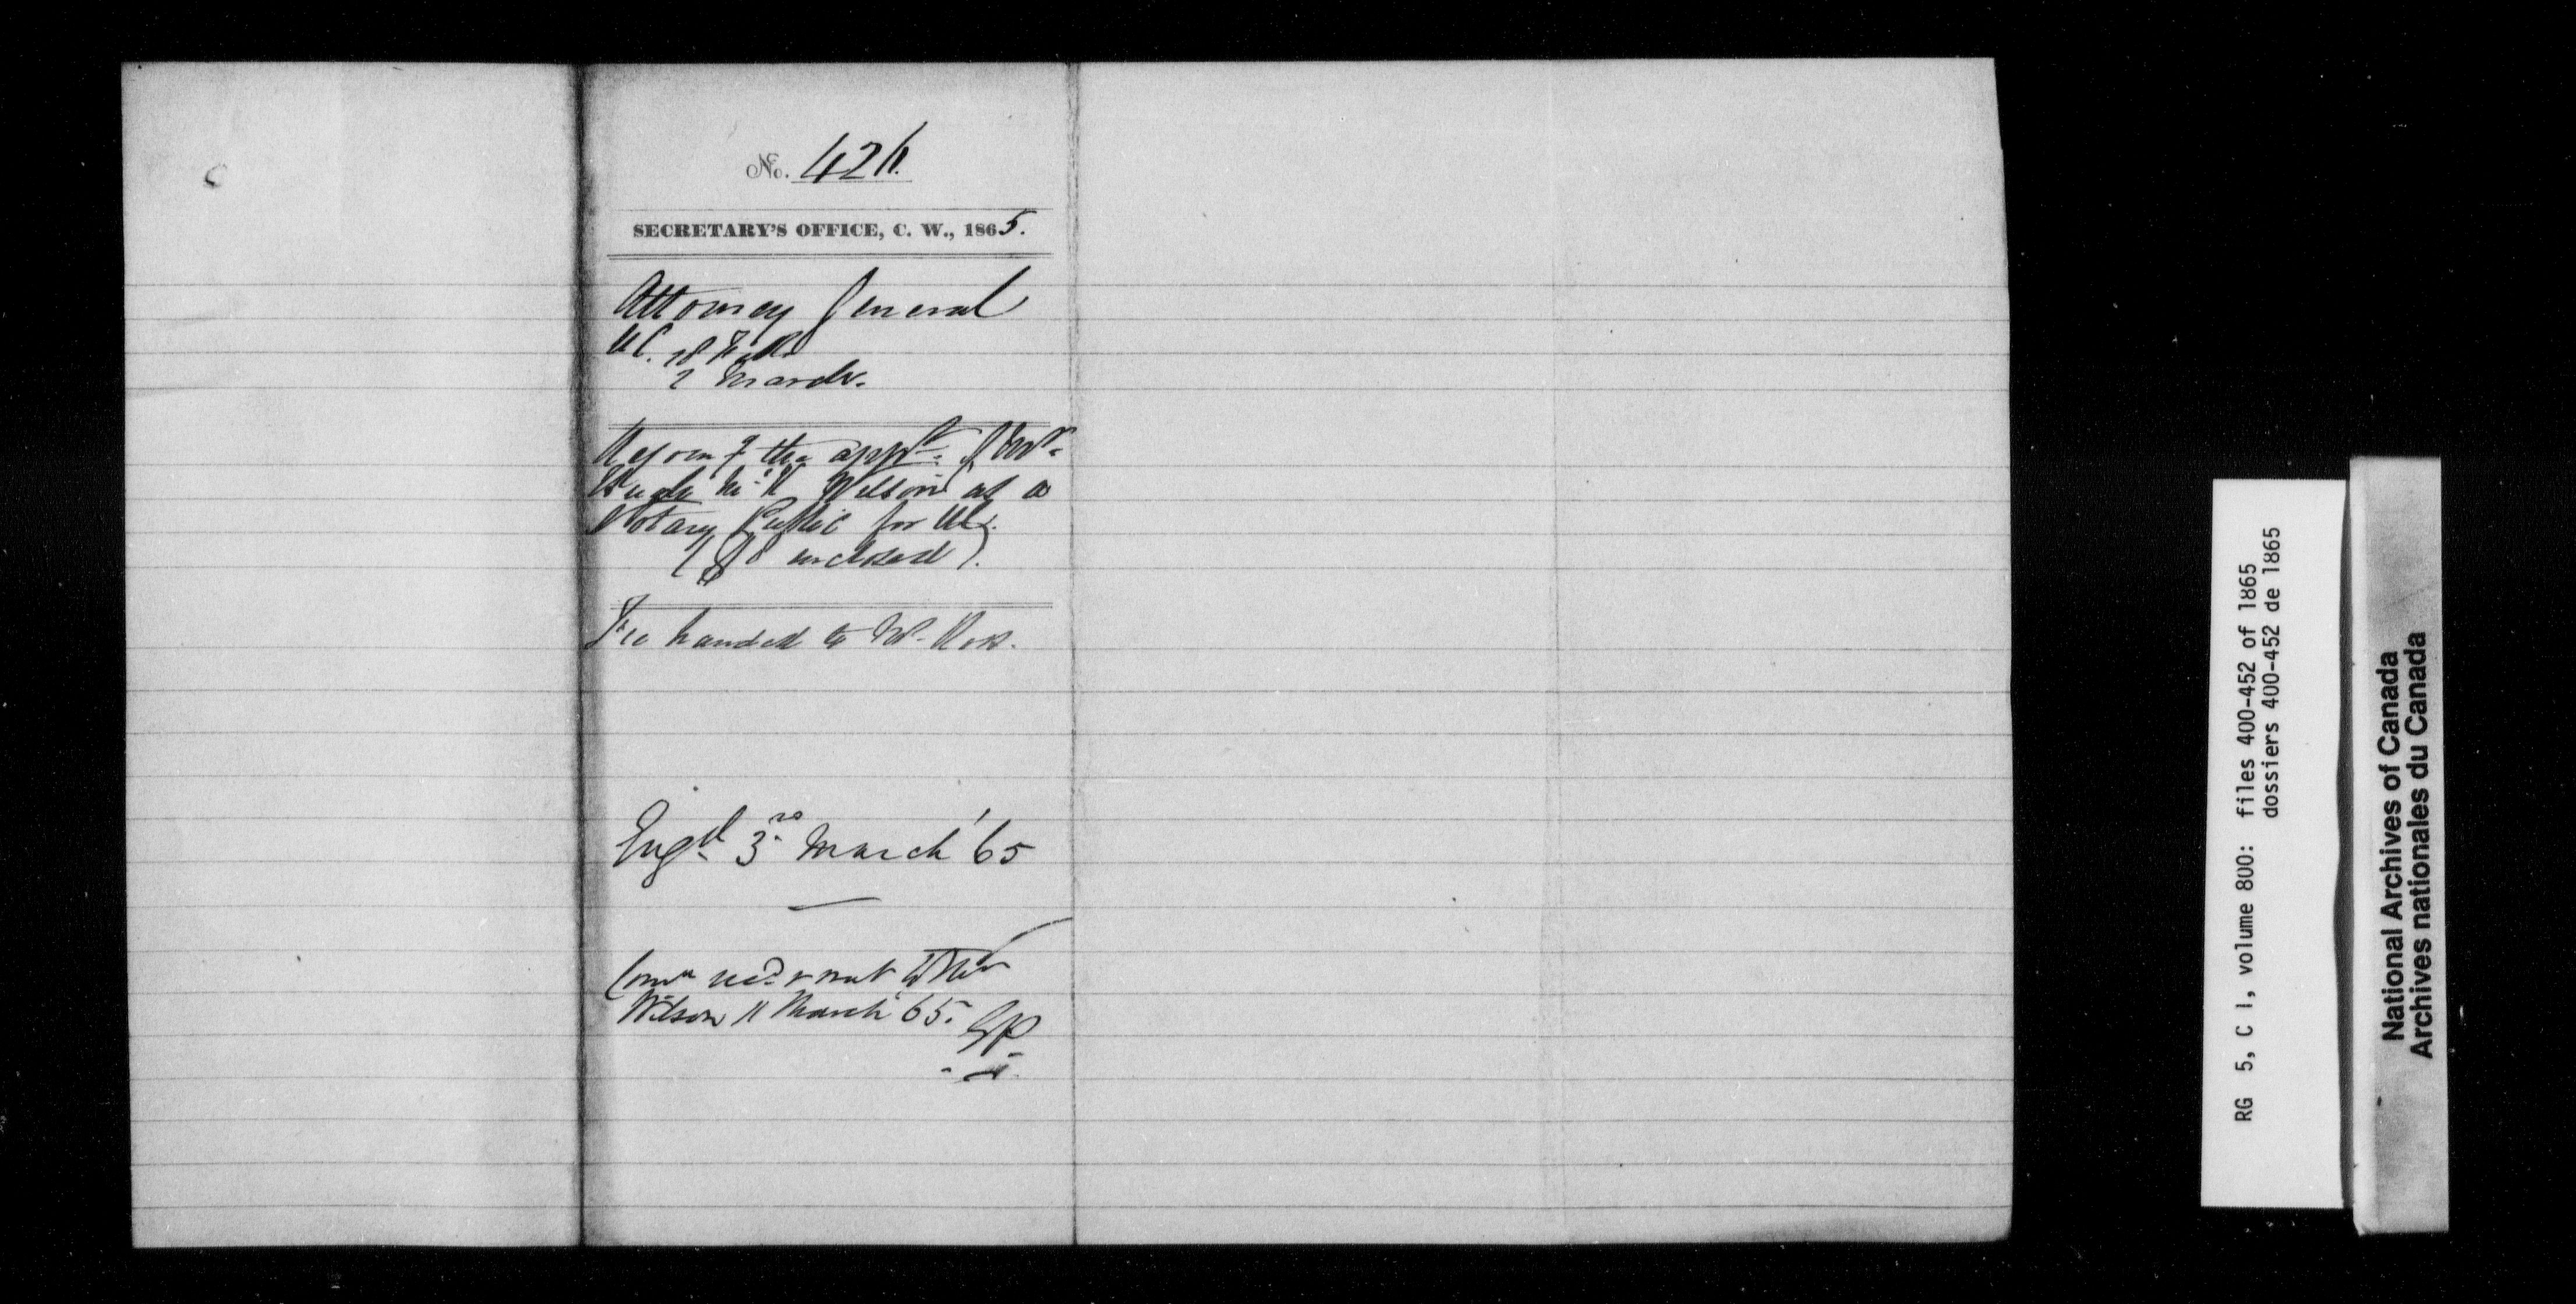 No. 424.
SECRETARY'S OFFICE, C. W., 1865.
Attorney General
U.C. 28 Feb
2 March.
Recom g the appt. of Mr.
Hugh McK Wilson as a
Notary Public for UC.
($8 enclosed).
Fee handed to Mr. Ross.
Engd. 3rd March '65
Comn recd & sent to Mr
Wilson 11 March 65.
RG 5, C 1, volume 800: files 400-452 of 1865
dossiers 400-452 de 1865
National Archives of Canada
Archives nationales du Canada